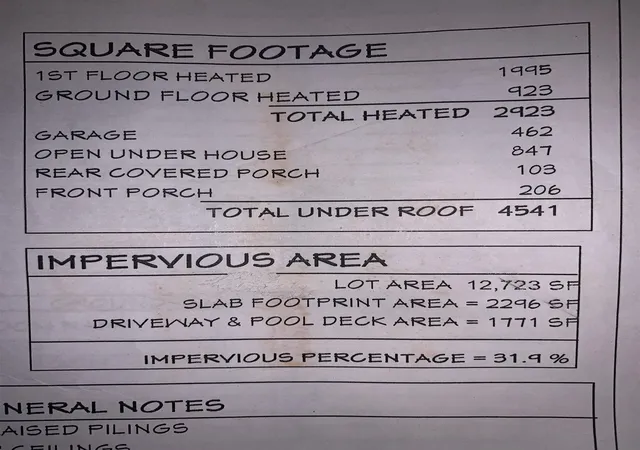 SQUARE FOOTAGE
1ST FLOOR HEATED 1995
GROUND FLOOR HEATED 923
TOTAL HEATED 2923
GARAGE 462
OPEN UNDER HOUSE 847
REAR COVERED PORCH 103
FRONT PORCH 206
TOTAL UNDER ROOF 4541
IMPERVIOUS AREA
LOT AREA 12,723 SF
SLAB FOOTPRINT AREA = 2296 SF
DRIVEWAY & POOL DECK AREA = 1771 SF
IMPERVIOUS PERCENTAGE = 31.9 %
NERAL NOTES
AISED PILINGS
CEILINGS